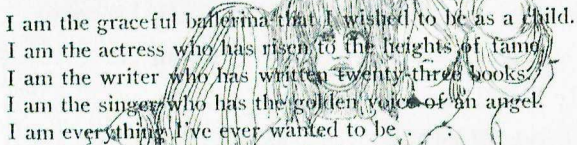 I am the graceful ballerina that I wished to be as a child.
I am the actress who has risen to the heights of fame.
I am the writer who has written twenty-three books.
I am the singer who has the golden voice of an angel.
I am everything I've ever wanted to be .